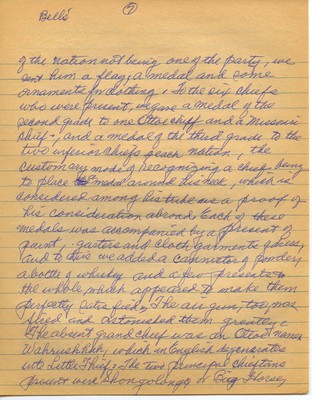 Bells
7
of the nation not being one of the party, we
sent him a flag, a medal and some
ornaments for clothing. To the six chiefs
who were present, we gave a medal of the
second grade to one Ottoe chief and a Missouri
chief, and a medal of the third grade to the
two inferior chiefs of each nation, the
customary mode of recognizing a chief being
to place medal around his neck, which is
considered among his tribe as a proof of
his consideration abroad. Each of these
medals was accompanied by a present of
paint, garters and cloth garments pieces,
and to this we added a cannister of powder,
a bottle of whisky and a few presents to
the whole, which appeared to make them
perfectly satisfied. The air gun too, was
fired and astonished them greatly.
The absent grand chief was an Ottoe named
which in English degenerates
into Little Thief. The two principal chieftains
present were Shongotongo or Big Horse,